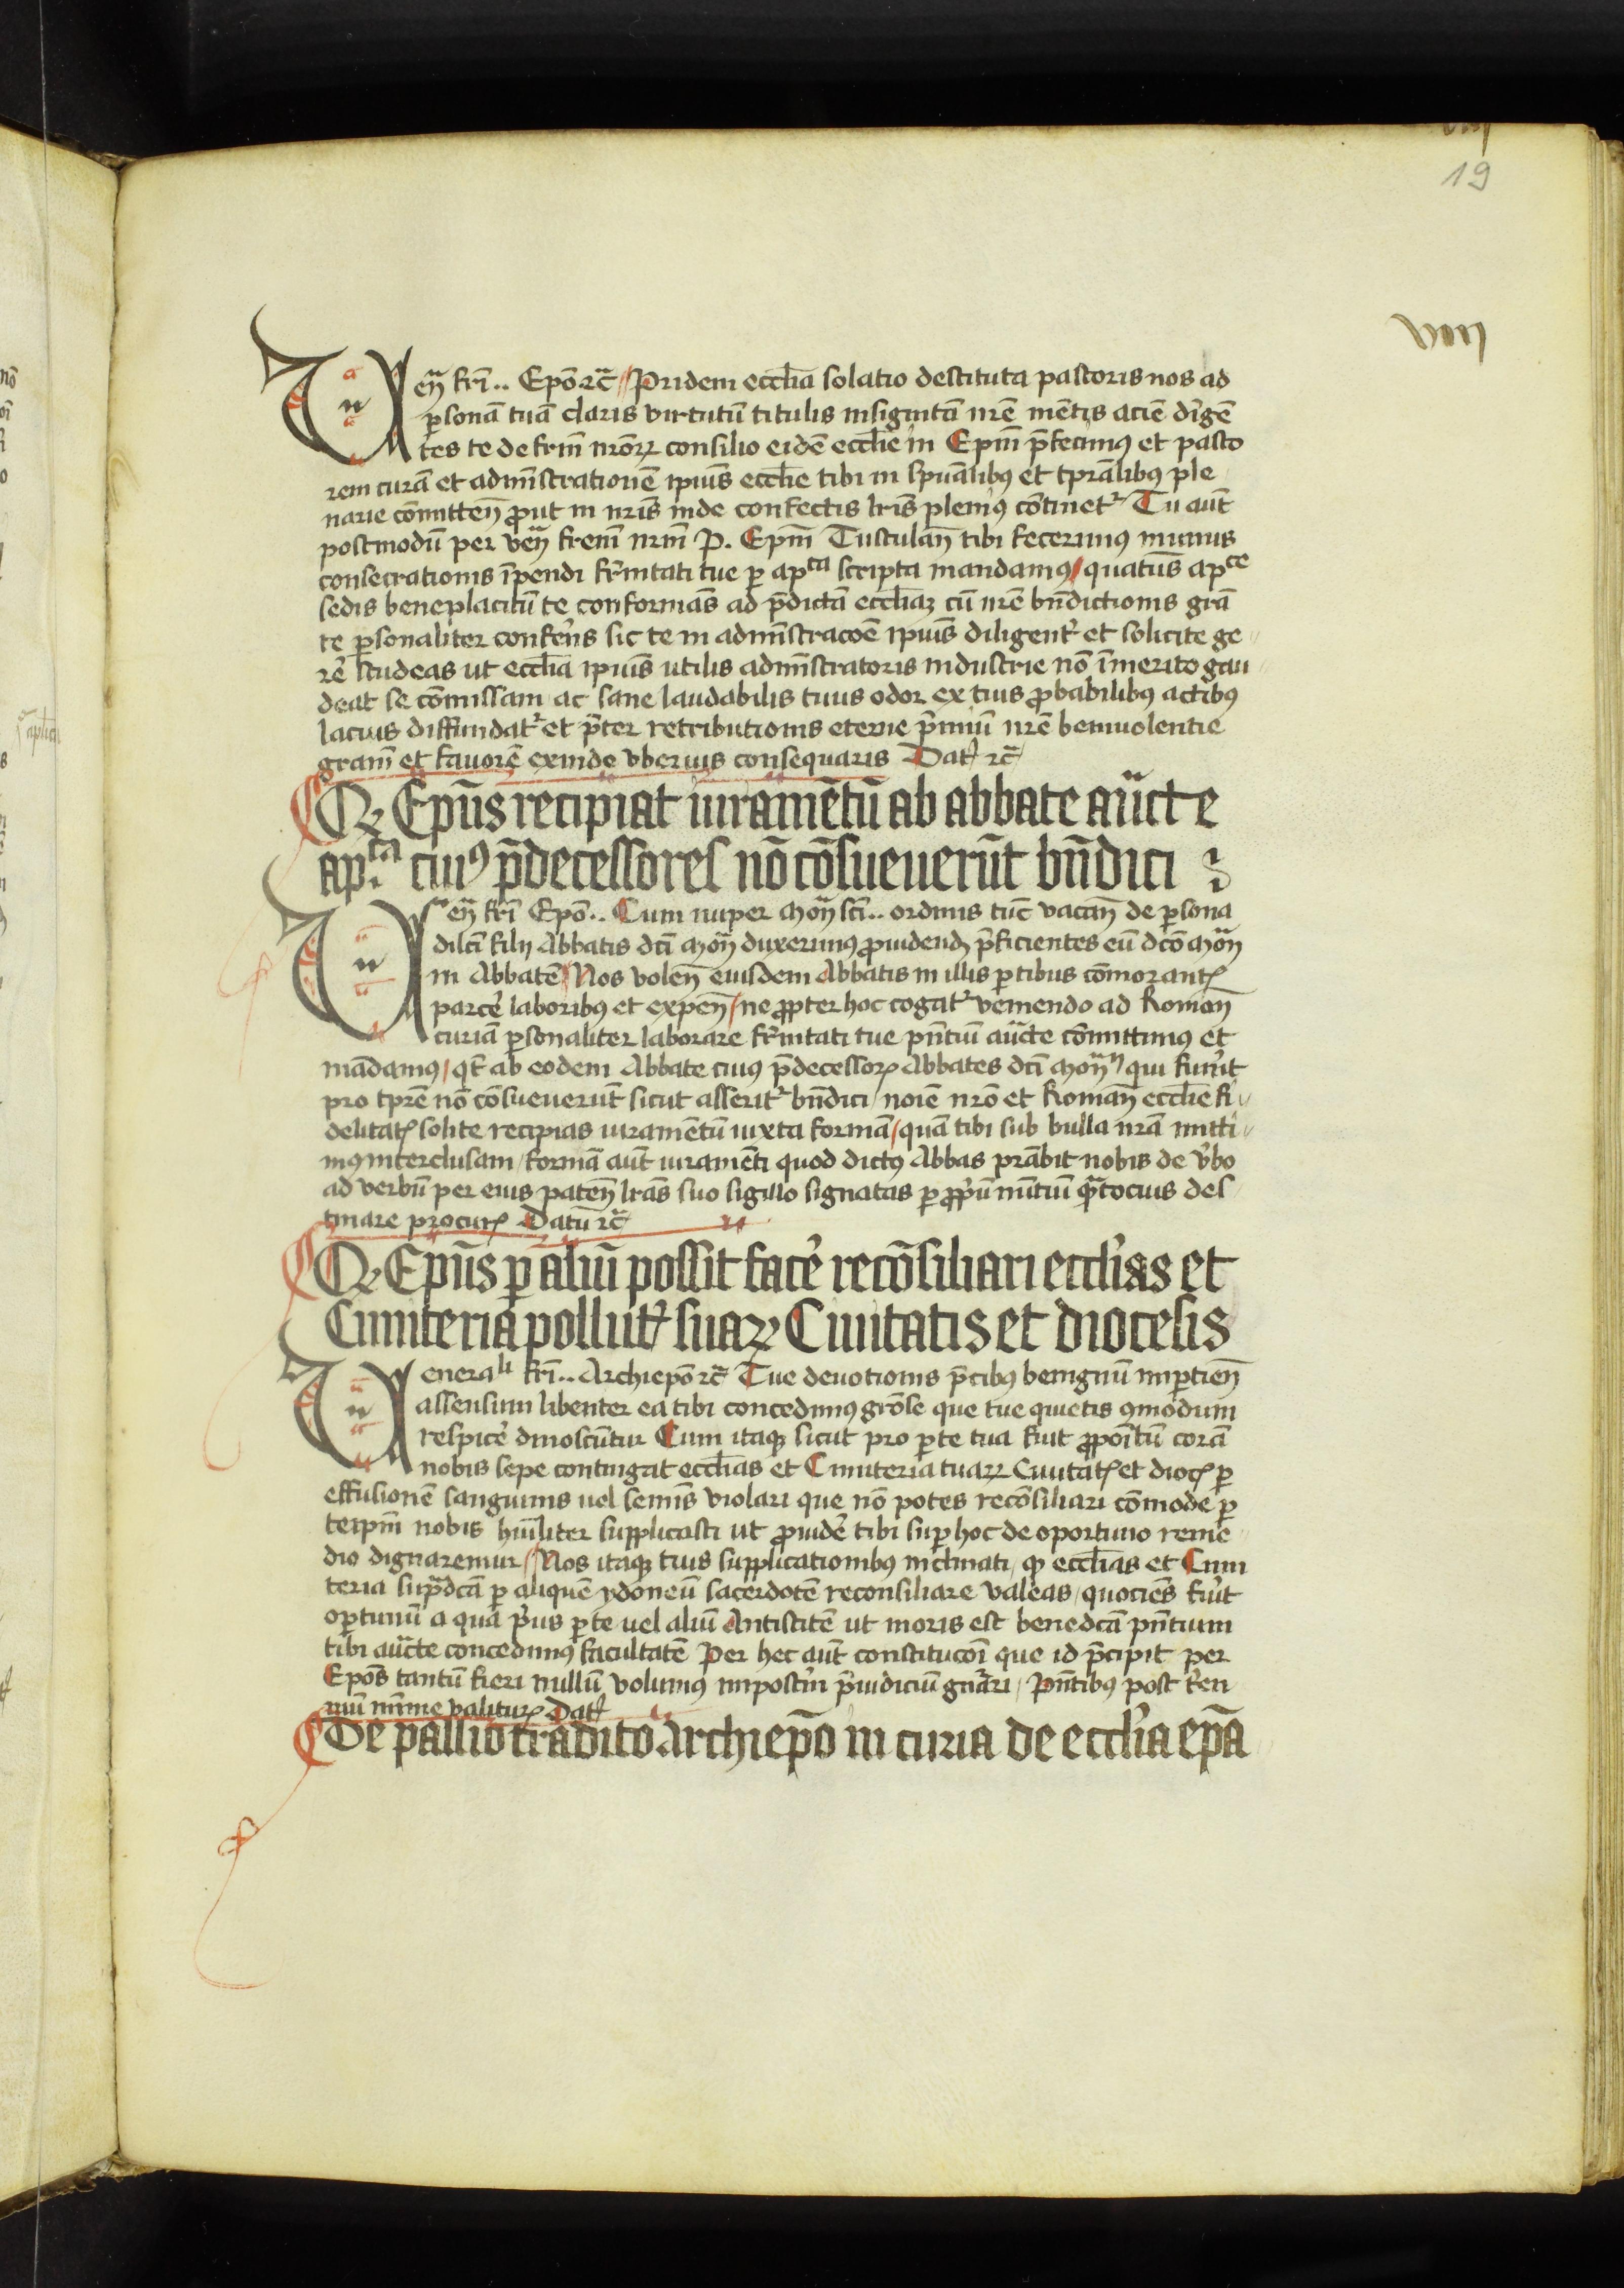 19
viij
Ven̄ fr̄i .. Ep̄o ⁊c̄ Pridem eccl̄ia solatio destituta pastoris nos ad
ꝑsonā tuā claris virtutū titulis insignitā nr̄e mētis aciē dirigē
tes te de fr̄m nr̄oꝝ consilio eidē eccl̄ie in Ep̄m p̄fecimꝰ et pasto
rem curā et admīstrationē ip̄ius eccl̄ie tibi in sp̄ualibꝰ et tp̄ralibꝰ ple
narie cōmittēn ꝓut in nr̄is inde confectis lr̄is plenius cōtinetʳ Tu aūt
postmodū per veñ frem̄ nr̄m P. Ep̄m Tusculan̄ tibi fecerimꝰ munus
consecrationis īpendi fr̄nitati tue ꝑ ap̄ᶜᵃ scripta mandamꝰ quatinꝰ ap̄ᶜᵉ
sedis beneplacitū te conformās ad p̄dictā eccl̄iaꝫ cū nr̄e bn̄dictionis grā
te ꝑsonaliter conferēs sic te in admīstracōe ip̄ius diligent̓ et solicite ge
re̓ studeas ut eccl̄ia ip̄ius utilis admīstratoris industrie nō īmerito gau
deat se cōmissam ac sane laudabilis tuus odor ex tuis ꝓbabilibꝰ actibꝰ
lacius diffundatʳ et p̄ter retributionis eterne p̄miū nr̄e beniuolentie
gram̄ et fauorē exinde vberius consequaris Datꝭ ⁊c̄
Qꝫ Ep̄us recipiat iuramētū ab abbate auct̄e
ap.ᶜᵃ cuiꝰ p̄decessores nō cōsueuerūt bn̄dici
Ven̄ fr̄i Ep̄o .. Cum nuper Mon̄ sc̄i .. ordinis tūc vacan̄ de ꝑsona
dilc̄i filij Abbatis dc̄i Mon̄ duxerimꝰ ꝓuidendꝫ p̄ficientes eū dc̄o Mon̄
in Abbatē Nos volen̄ eiusdem Abbatis in illis ꝑtibus cōmorantꝭ
parce̓ laboribꝰ et expen̄ ne ꝓpter hoc cogatʳ veniendo ad Roman̄
curiā ꝑsonaliter laborare fr̄nitati tue pn̄tiū auct̄e cōmittimꝰ et
mādamꝰ qt̄ ab eodem Abbate cuiꝰ p̄decessorꝭ Abbates dc̄i Mon̄ qui fuer̄t
pro tp̄re nō cōsueuerūt sicut asseritʳ bn̄dici noīe nr̄o et Roman̄ eccl̄ie fi
delitatꝭ solite recipias iuramētū iuxta formā quā tibi sub bulla nr̄a mitti
mꝰ interclusam formā aūt iuramēti quod dictꝰ Abbas prābit nobis de v̓bo
ad verbū per eius paten̄ lrās suo sigillo signatas ꝑ ꝓpriū nūtiū q̄tocius des
tinare procurꝭ Datū ⁊c̄
Qꝫ Ep̄us ꝑ aliū possit face̓ recōsiliari eccl̄ias et
Cimiteria pollutꝭ suaꝝ Ciuitatis et diocesis
Venerali fr̄i .. Archiep̄o ⁊c̄ Tue deuotionis p̄cibꝰ benignū imꝑtien̄
assensum libenter ea tibi concedimꝰ gr̄ose que tue quietis ꝯmodum
respice̓ dinoscūtur Cum itaqꝫ sicut pro ꝑte tua fuit ꝓpoītū corā
nobis sepe contingat eccl̄ias et Cimiteria tuaꝝ Ciuitatꝭ et diocꝭ ꝑ
effusionē sanguinis uel semīs violari que nō potes recōsiliari cōmode ꝑ
teip̄m nobis humiliter supplicasti ut ꝓuide̓ tibi suꝑ hoc de oportuno reme
dio dignaremur Nos itaqꝫ tuis supplicationibꝰ inclinati qꝫ eccl̄ias et Cimi
teria sup̄dcā ꝑ aliquē ydoneū sacerdotē reconsiliare valeas quociēs fu̓it
oꝑtunū aqua p̓us ꝑ te uel aliū Antistitē ut moris est benedcā pn̄tium
tibi auct̄e concedimꝰ facultatē Per hec aūt constitucōi que id p̄cipit per
Ep̄os tantū fieri nullū volumꝰ imposter̄ p̄iudiciū gn̄ari Pn̄tibꝰ post trien
niū mīme valiturꝭ Datꝭ
De pallio tradito Archiep̄o in curia de eccl̄ia ep̄a